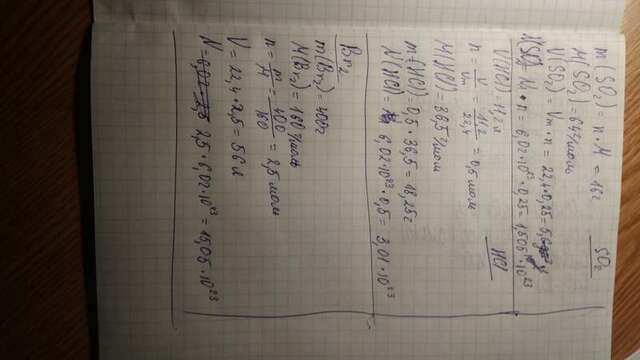 SO₂
m(SO₂) = n · M = 16г
M(SO₂) = 64 г/моль
V(SO₂) = Vₘ · n = 22,4·0,25 = 5,6
N = Nₐ · n = 6,02·10²³·0,25 = 1,505·10²³
HCl
V(HCl) = 11,2 л
n = V/Vₘ = 11,2/22,4 = 0,5 моль
M(HCl) = 36,5 г/моль
m(HCl) = 0,5 · 36,5 = 18,25г
N(HCl) = 6,02·10²³·0,5 = 3,01·10²³
Br₂
m(Br₂) = 400г
M(Br₂) = 160 г/моль
n = m/M = 400/160 = 2,5 моль
V = 22,4·2,5 = 56 л
N = 2,5·6,02·10²³ = 1505·10²³